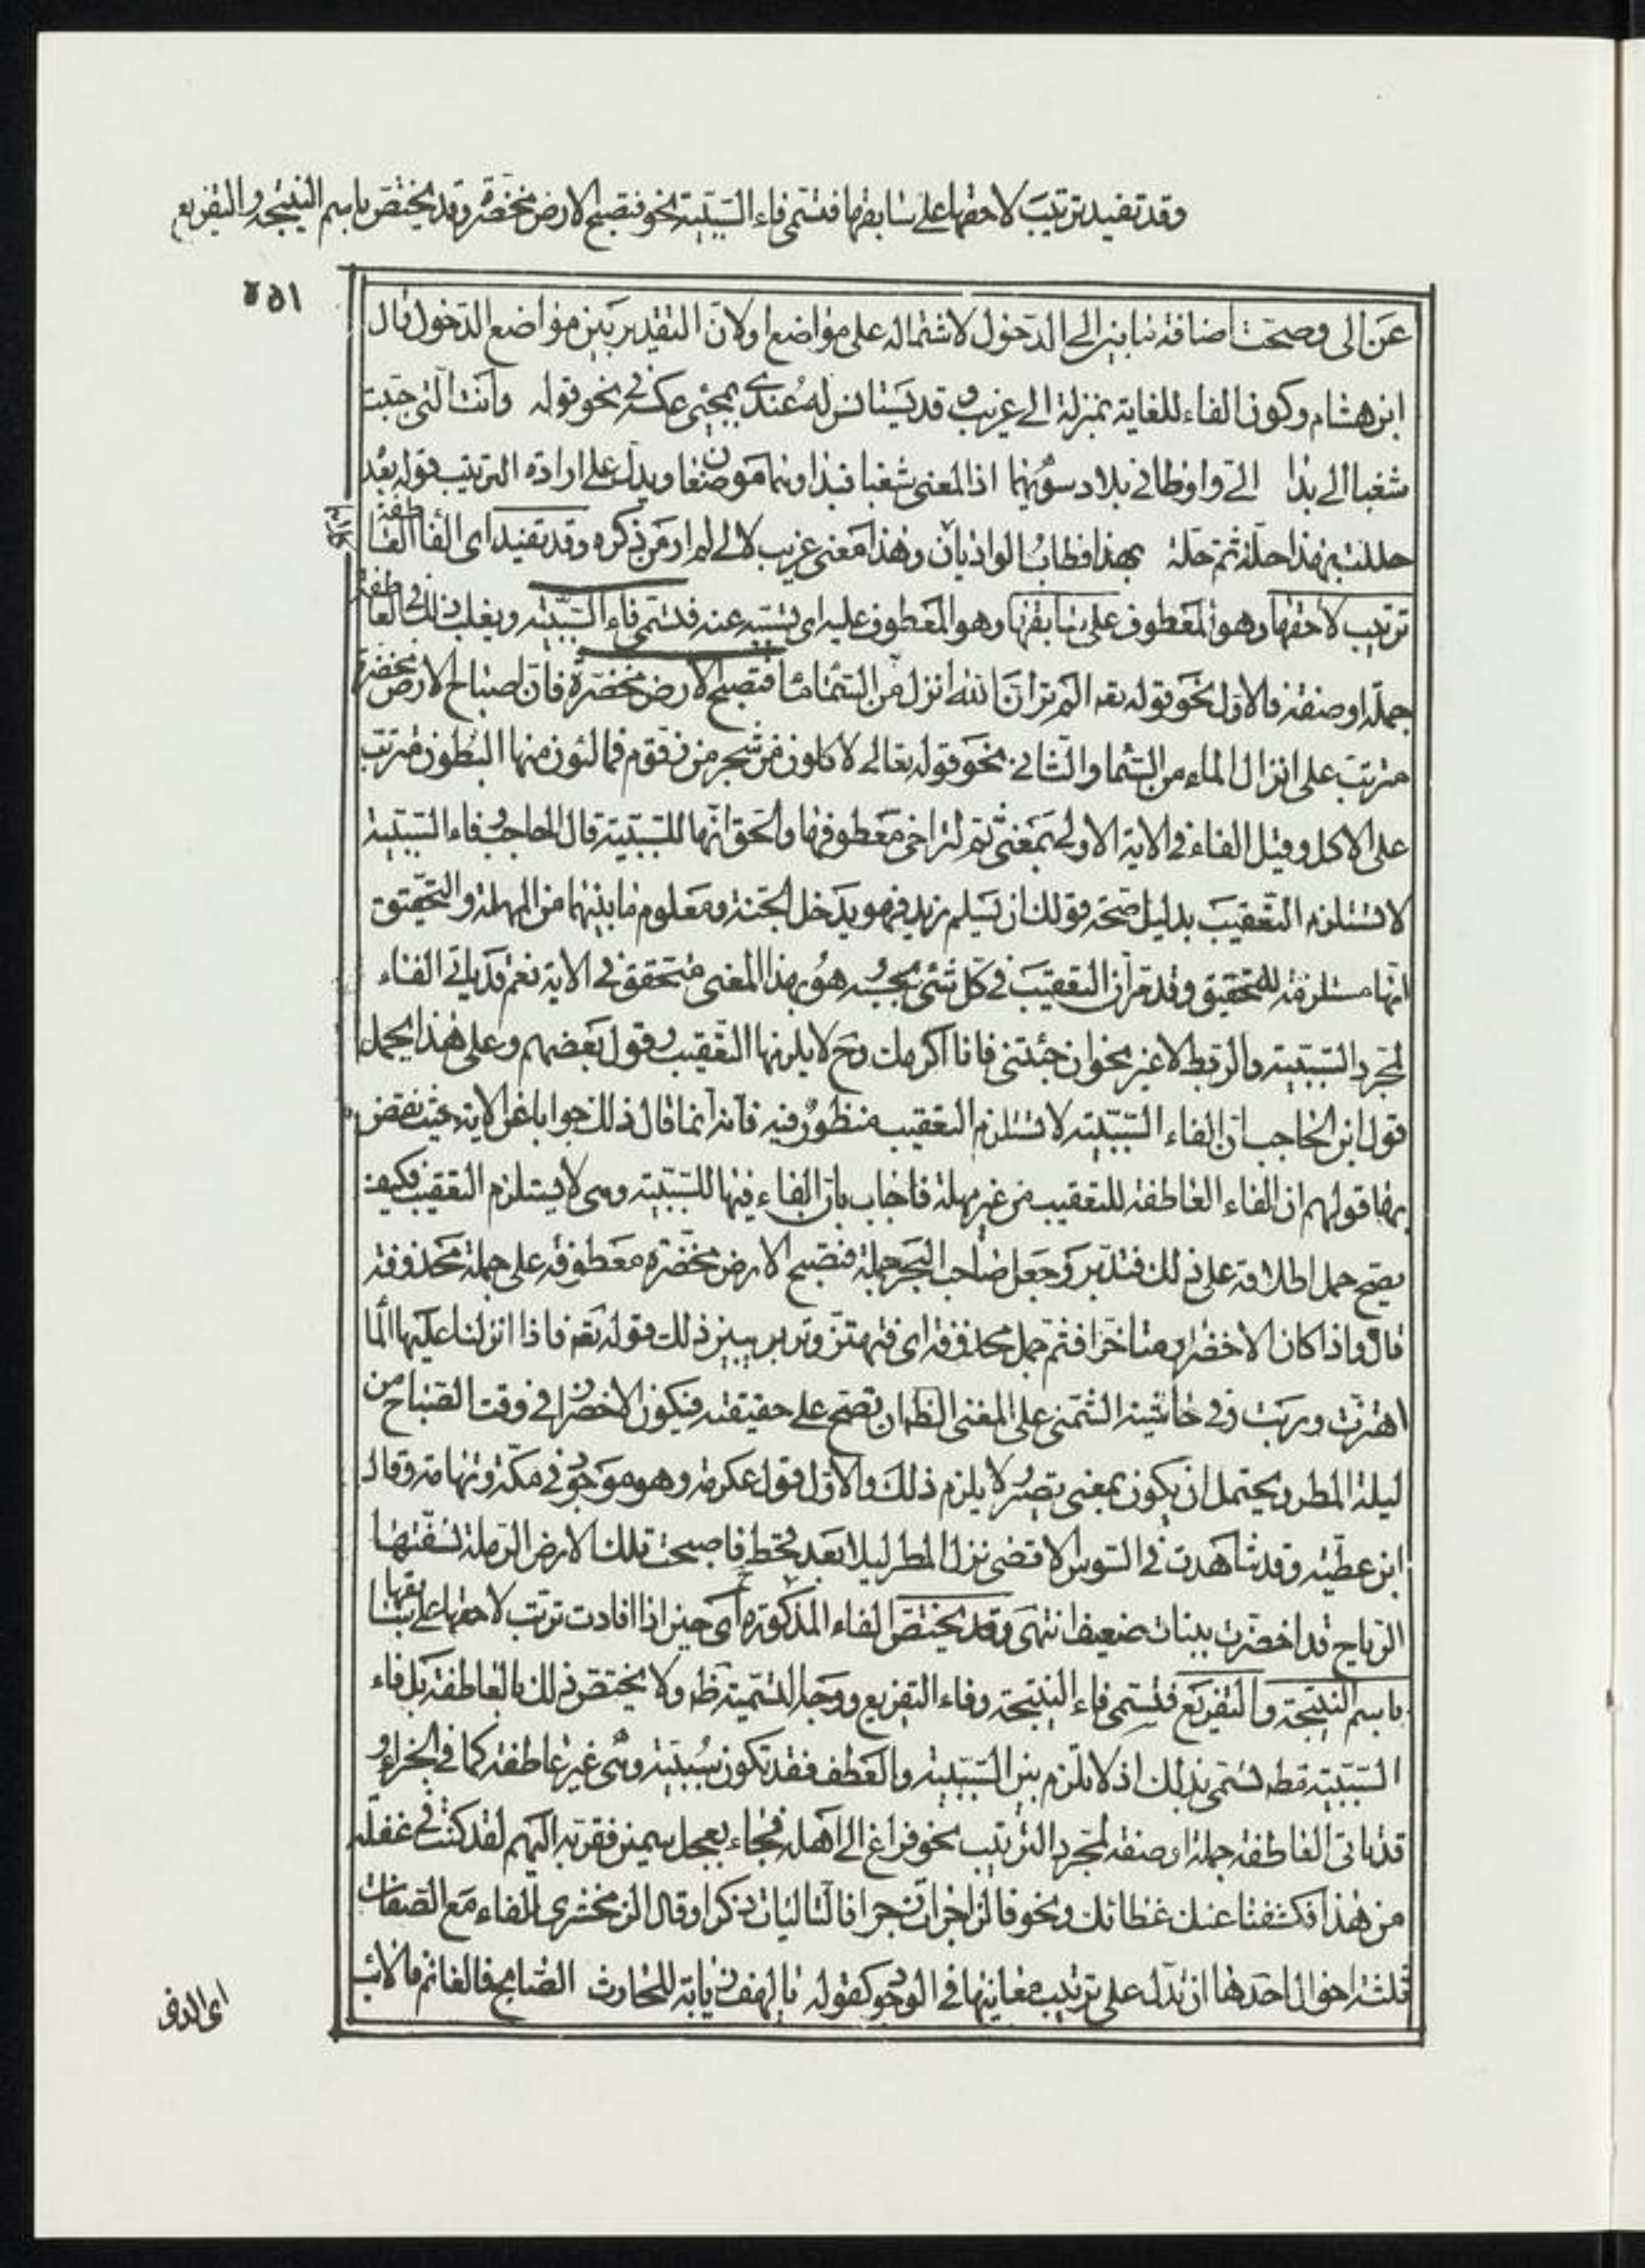 وقد تفيد ترتيب لاحقها على سابقها فتسمى فاء السببية نحو فتصبح الارض مخضرة وقد يختص باسم النتيجة والتفريع
عن الى وصحت اضافة بين الى الدخول لاشتماله على مواضع اولان التقدير بين مواضع الدخول قال
ابن هشام وكون الفاء للغاية بمنزلة الى غريب وقد يستانس له عندى بمجئى عكسه فى نحو قوله وانت التى حببت
شغبا الى بدا الى واوطانى بلاد سواهما اذ المعنى شغبا فبدا وهما موضعان ويدل على ارادة الترتيب قوله بعد
حللت بهذا حلة ثم حلة بهذا فطاب الواديان وهذا معنى غريب لالى لم ار من ذكره وقد تفيد اى الفاء العاطفة
ترتيب لاحقها وهو المعطوف على سابقها وهو المعطوف عليه اى تسببه عنه فتسمى فاء السببية ويغلب ذلك فى العاطفة
جملة او صفة فالاول نحو قوله تعه الم تر ان الله انزل من السماء ماء فتصبح الارض مخضرة فان اصباح الارض مخضرة
مترتب على انزال الماء من السماء والثانى نحو قوله تعالى لاكلون من شجر من زقوم فمالئون منها البطون مترتب
على الاكل وقيل الفاء فى الاية الاولى بمعنى ثم لتراخى معطوفها والحق انها للسببية قال الحاجب فاء السببية
لا تستلزم التعقيب بدليل صحة قولك ان يسلم زيد فهو يدخل الجنة ومعلوم ما بينهما من المهلة والتحقيق
انها مستلزمة للتحقيق وقد مر ان التعقيب فى كل شئ بحسبه وهو بهذا المعنى متحقق فى الاية نعم قد ياتى الفاء
لمجرد السببية والربط لا غير نحو ان جئتنى فانا اكرمك وح لا يلزمها التعقيب وقول بعضهم وعلى هذا يحمل
قول ابن الحاجب ان الفاء السببية لا تستلزم التعقيب منظور فيه فانه انما قال ذلك جوابا عن الاية حيث نقض
بها قولهم ان الفاء العاطفة للتعقيب من غير مهلة فاجاب بان الفاء فيها للسببية وهى لا يستلزم التعقيب فكيف
يصح حمل اطلاقه على ذلك فتدبر وجعل صاحب البحر جملة فتصبح الارض مخضرة معطوفة على جملة محذوفة
قال واذا كان الاخضرار متاخرا فثم جمل محذوفة اى فتهتز وتربو يبين ذلك قوله تعه فاذا انزلنا عليها الما
اهتزت وربت وفى حاشية الشمنى على المغنى الظه ان تصبح على حقيقته فيكون الاخضرار فى وقت الصباح من
ليلة المطر ويحتمل ان يكون بمعنى تصير لا يلزم ذلك والاول قول عكرمة وهو موجود فى مكة وتهامة وقال
ابن عطية وقد شاهدت فى السوس الاقصى نزل المطر ليلا بعد قحط فاصبحت تلك الارض الرملة نسفتها
الرياح قد اخضرت بنبات ضعيف انتهى وقد يختص الفاء المذكورة ح اى حين اذا افادت ترتب لاحقها على سابقها
باسم النتيجة والتفريع فتسمى فاء النتيجة وفاء التفريع ووجه التسمية ظه ولا يختص ذلك بالعاطفة بل فاء
السببية مطه تسمى بذلك اذ لا تلازم بين السببية والعطف فقد تكون سببية وهى غير عاطفة كما فى الجزاء و
قد ياتى العاطفة جملة او صفة لمجرد الترتيب نحو فراغ الى اهله فجاء بعجل سمين فقربه اليهم لقد كنت فى غفلة
من هذا فكشفنا عنك غطائك ونحو فالزاجرات زجرا فالتاليات ذكرا وقال الزمخشرى للفاء مع الصفات
ثلثة احوال احدها ان تدل على ترتيب معانيها فى الوجود كقوله يا لهف زيابة للحارث الصابح فالغانم فالائب
اى الذى